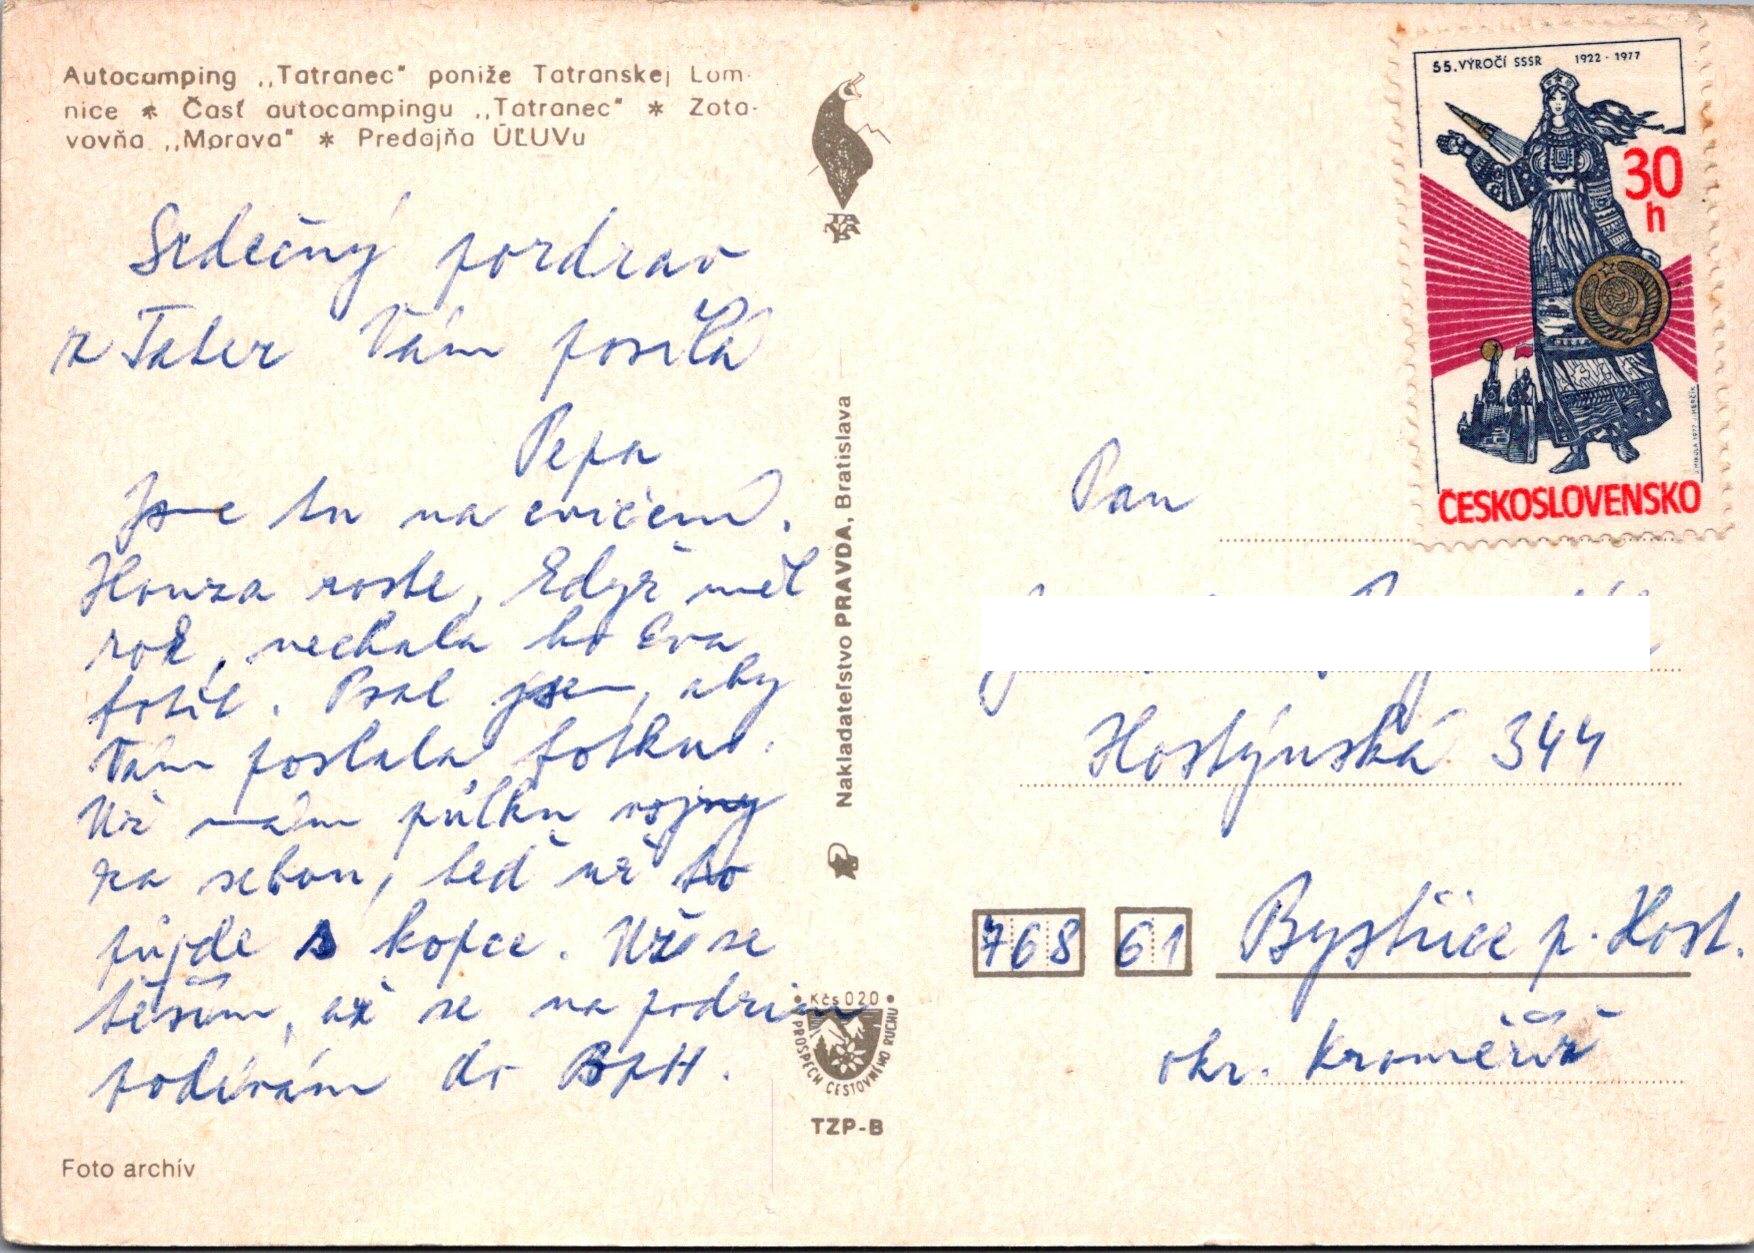 Autocamping ,,Tatranec" poniže Tatranskej Lom-
nice * Časť autocampingu ,,Tatranec" * Zota-
vovňa ,,Morava" * Predajňa ÚĽUVu
Srdečný pozdrav
z Tater Vám posílá
Pepa
Jsme tu na cvičení.
Honza roste, Když měl
rok, nechala ho Eva
fotit. Psal jsem, aby
Vám poslala fotku.
Už mám půlku vojny
za sebou, teď už to
půjde s kopce. Už se
těším, až se na podzim
podívám do BpH.
Foto archív
Nakladateľstvo PRAVDA, Bratislava
• Kčs 020 •
PROSPECH CESTOVNÉHO RUCHU
TZP-B
55. VÝROČÍ SSSR 1922 · 1977
30
h
ČESKOSLOVENSKO
Pan
Hostýnská 344
768 61 Bystřice p. Host.
okr. Kroměříž